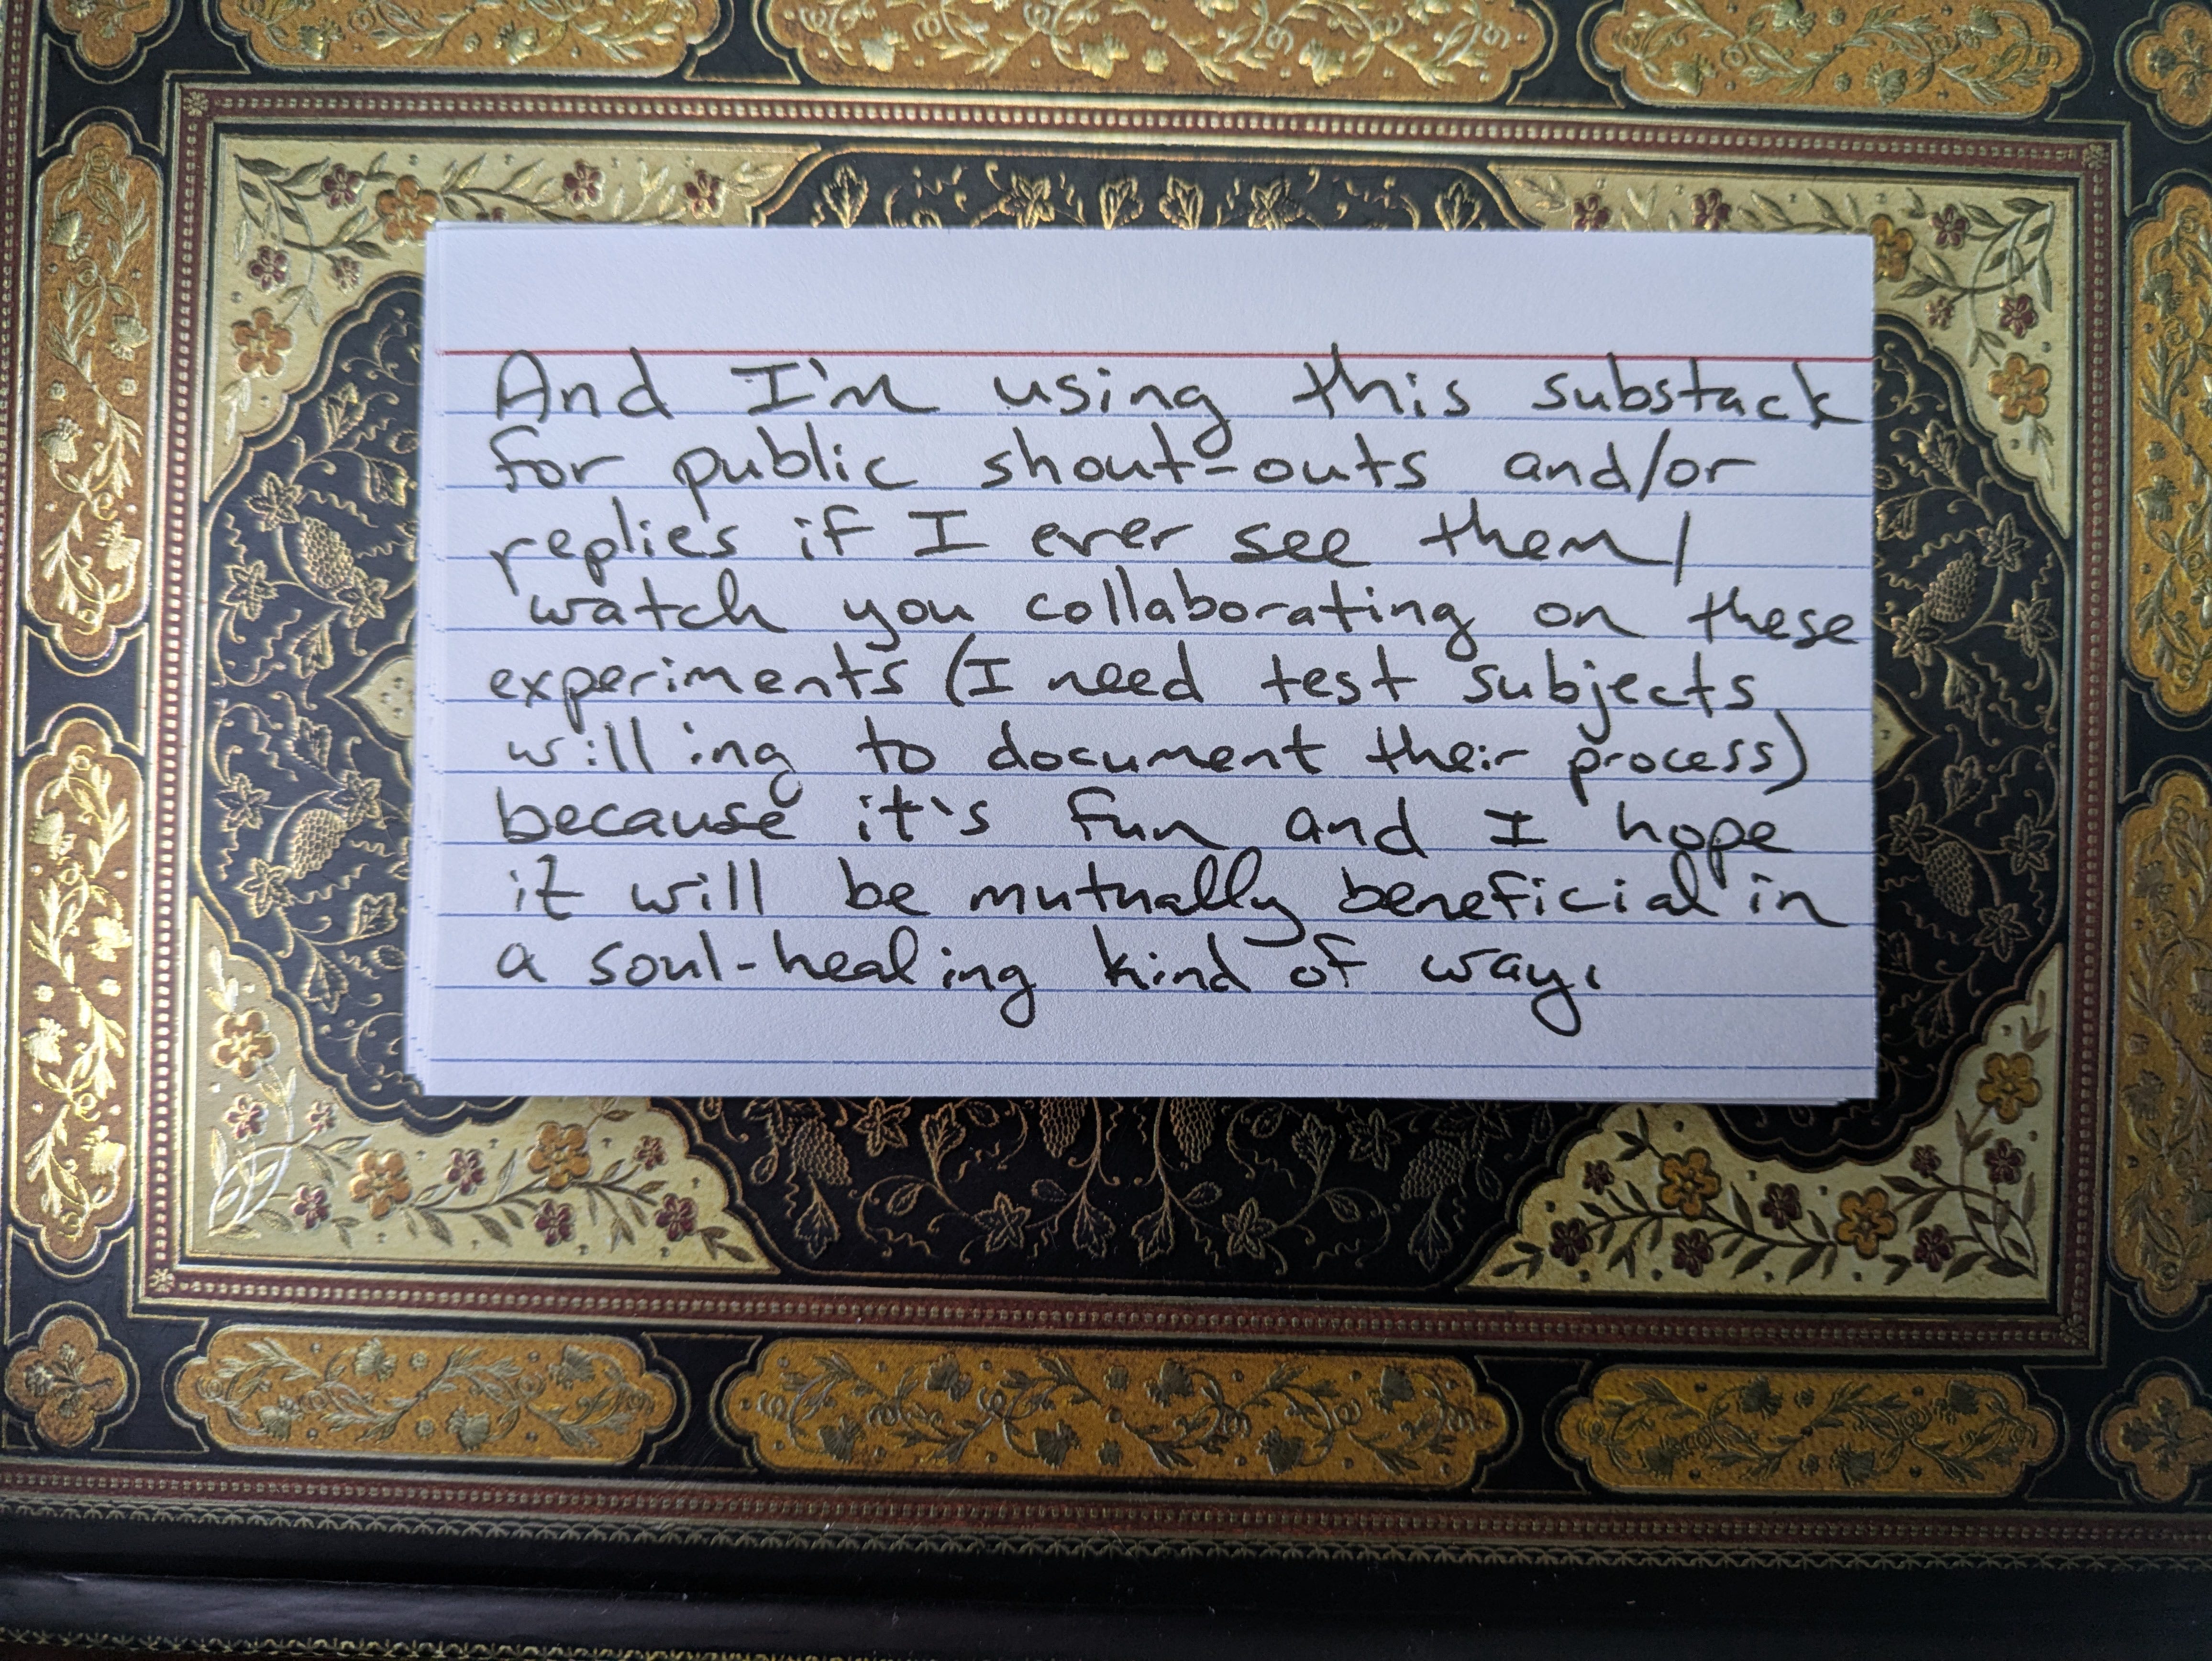 And I'm using this substack
for public shout-outs and/or
replies if I ever see them/
watch you collaborating on these
experiments (I need test subjects
willing to document their process)
because it's fun and I hope
it will be mutually beneficial in
a soul-healing kind of way.